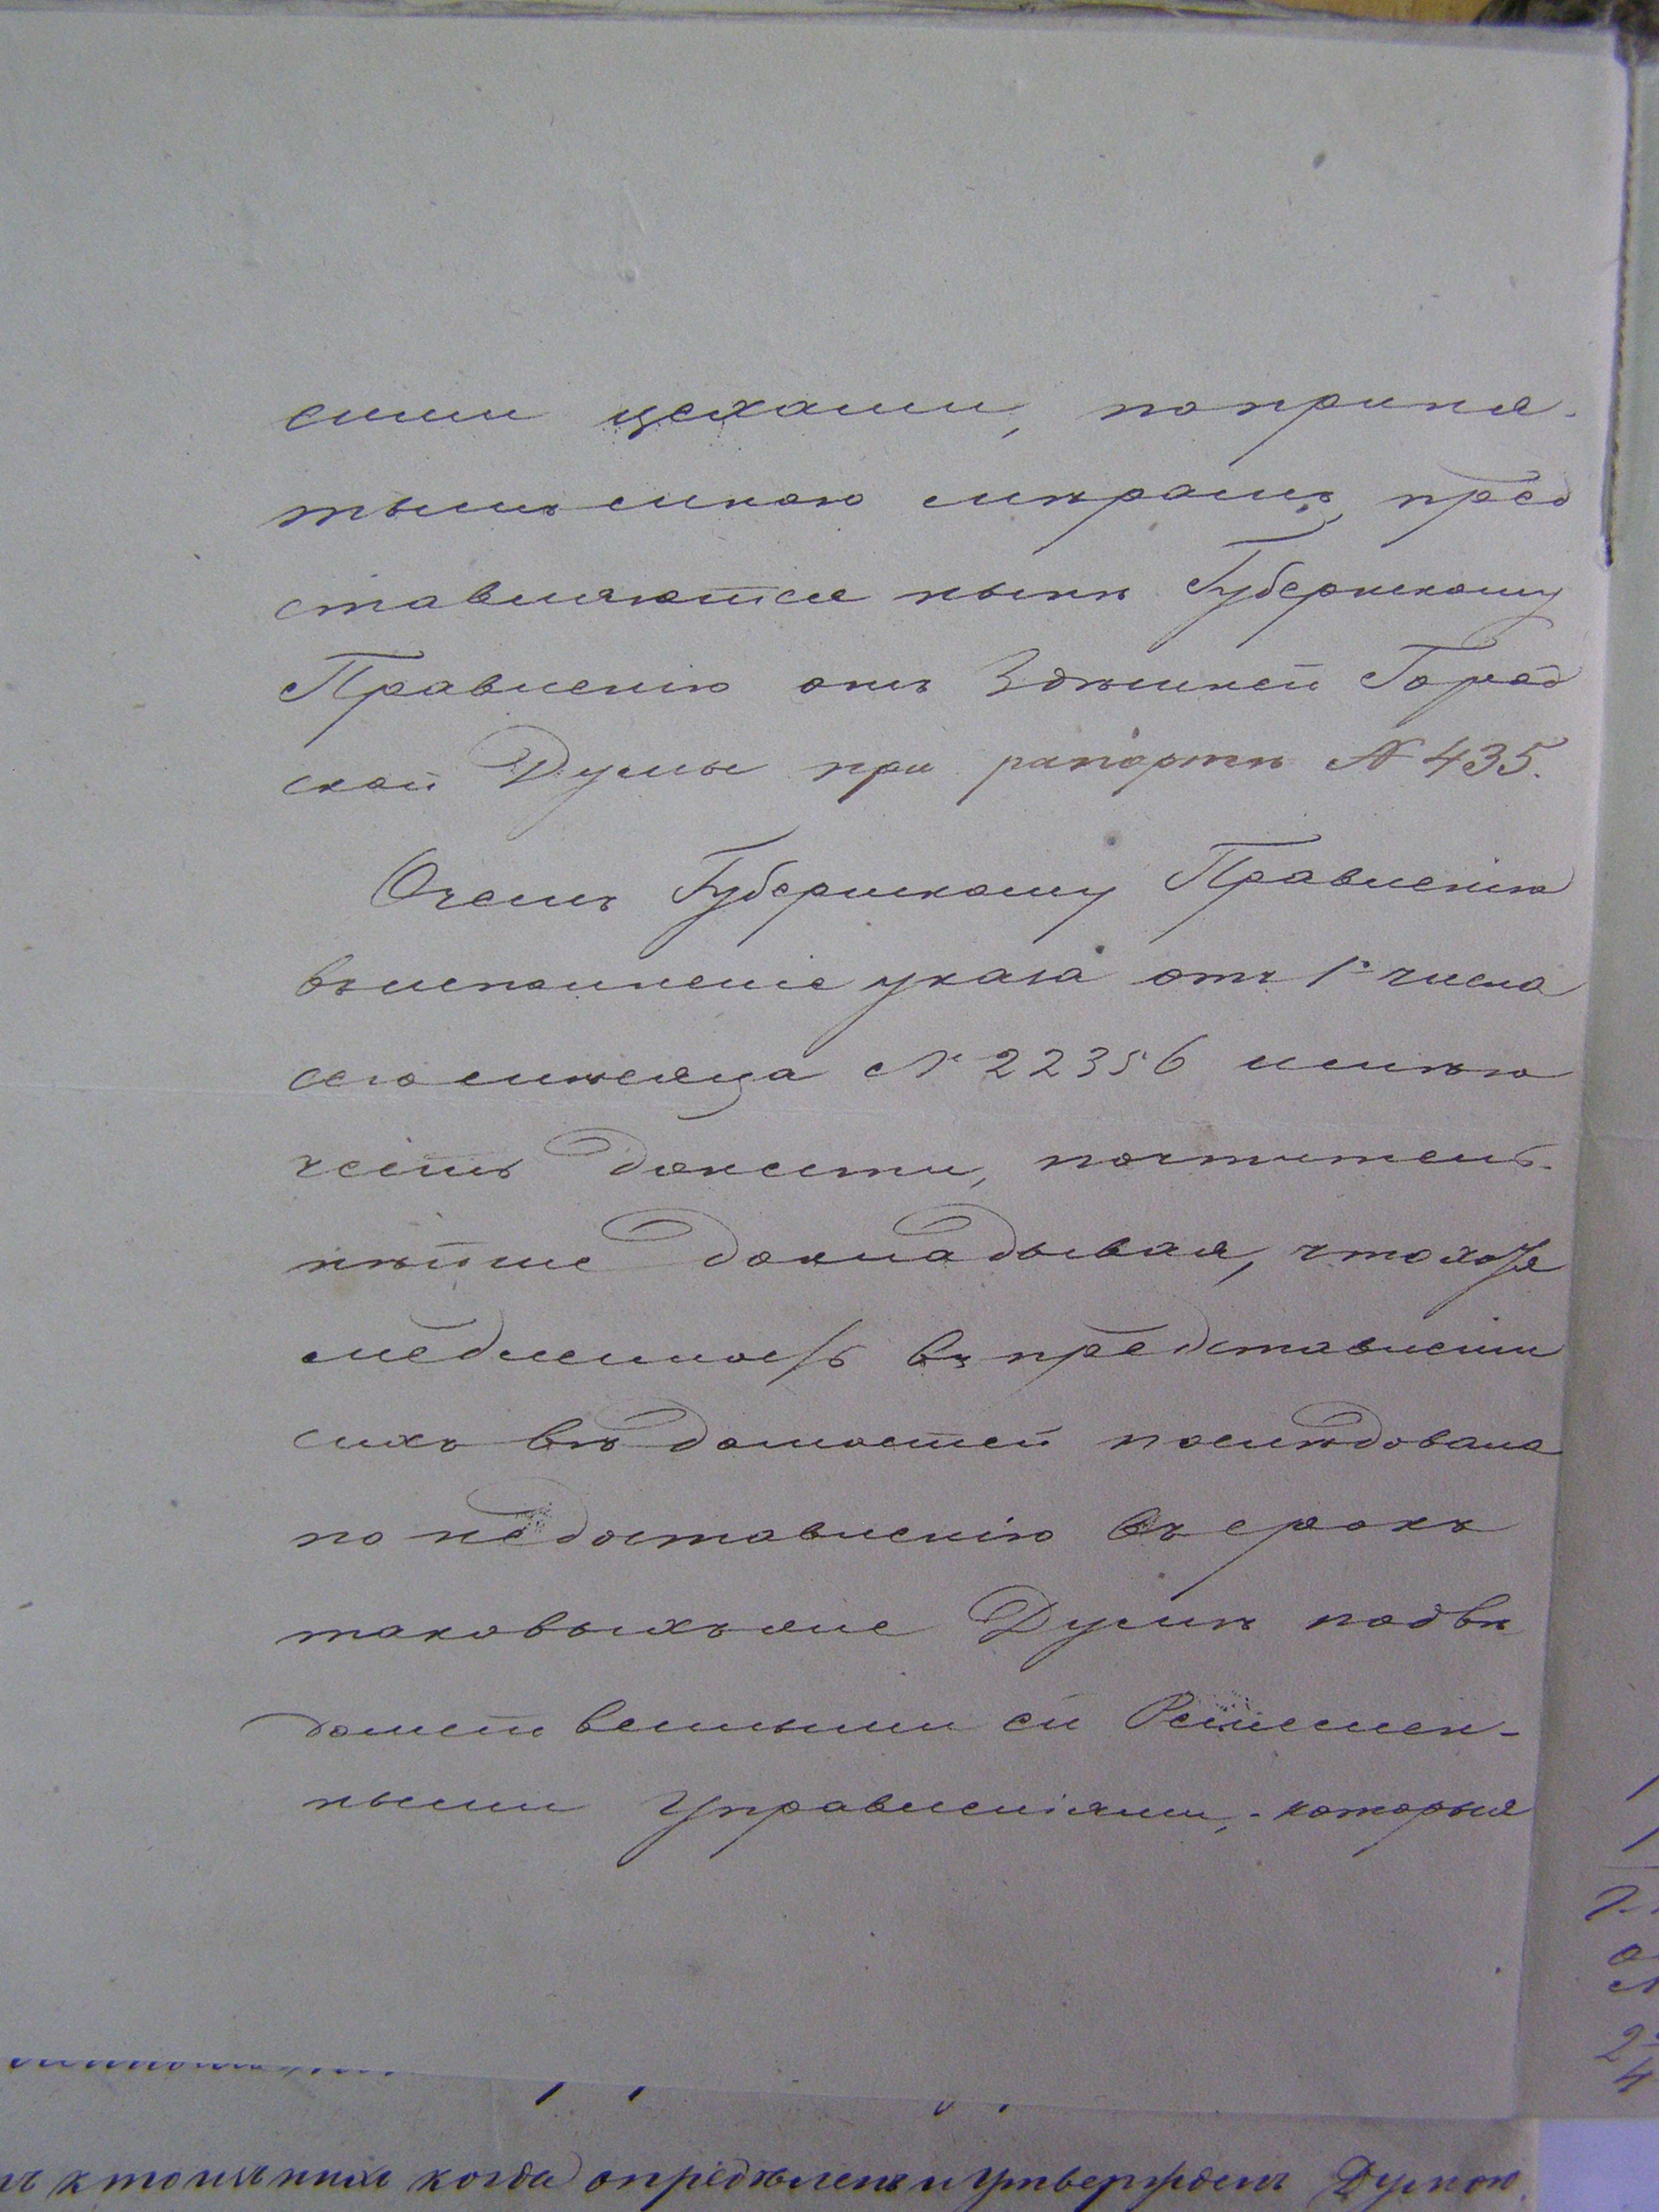 сими цехами, по приня-
тымъ мною мѣрамъ, пред
ставляются нынѣ Губернскому
Правленію отъ Здѣшней Город
ской Думы при рапортѣ № 435.
Очемъ Губернскому Правленію
во исполненіе указа отъ 1го числа
сего мѣсяца № 22356 имѣю
честь донести, почтитель-
нѣйше докладывая, что хотя
медленность въ представленіи
сихъ вѣдомостей послѣдовала
по недоставленію въ срокъ
таковыхъ же Думѣ подвѣ
домственными ей Ремеслен-
ными Управленіями, - которыя
когда опредѣленъ и утвержденъ Думою